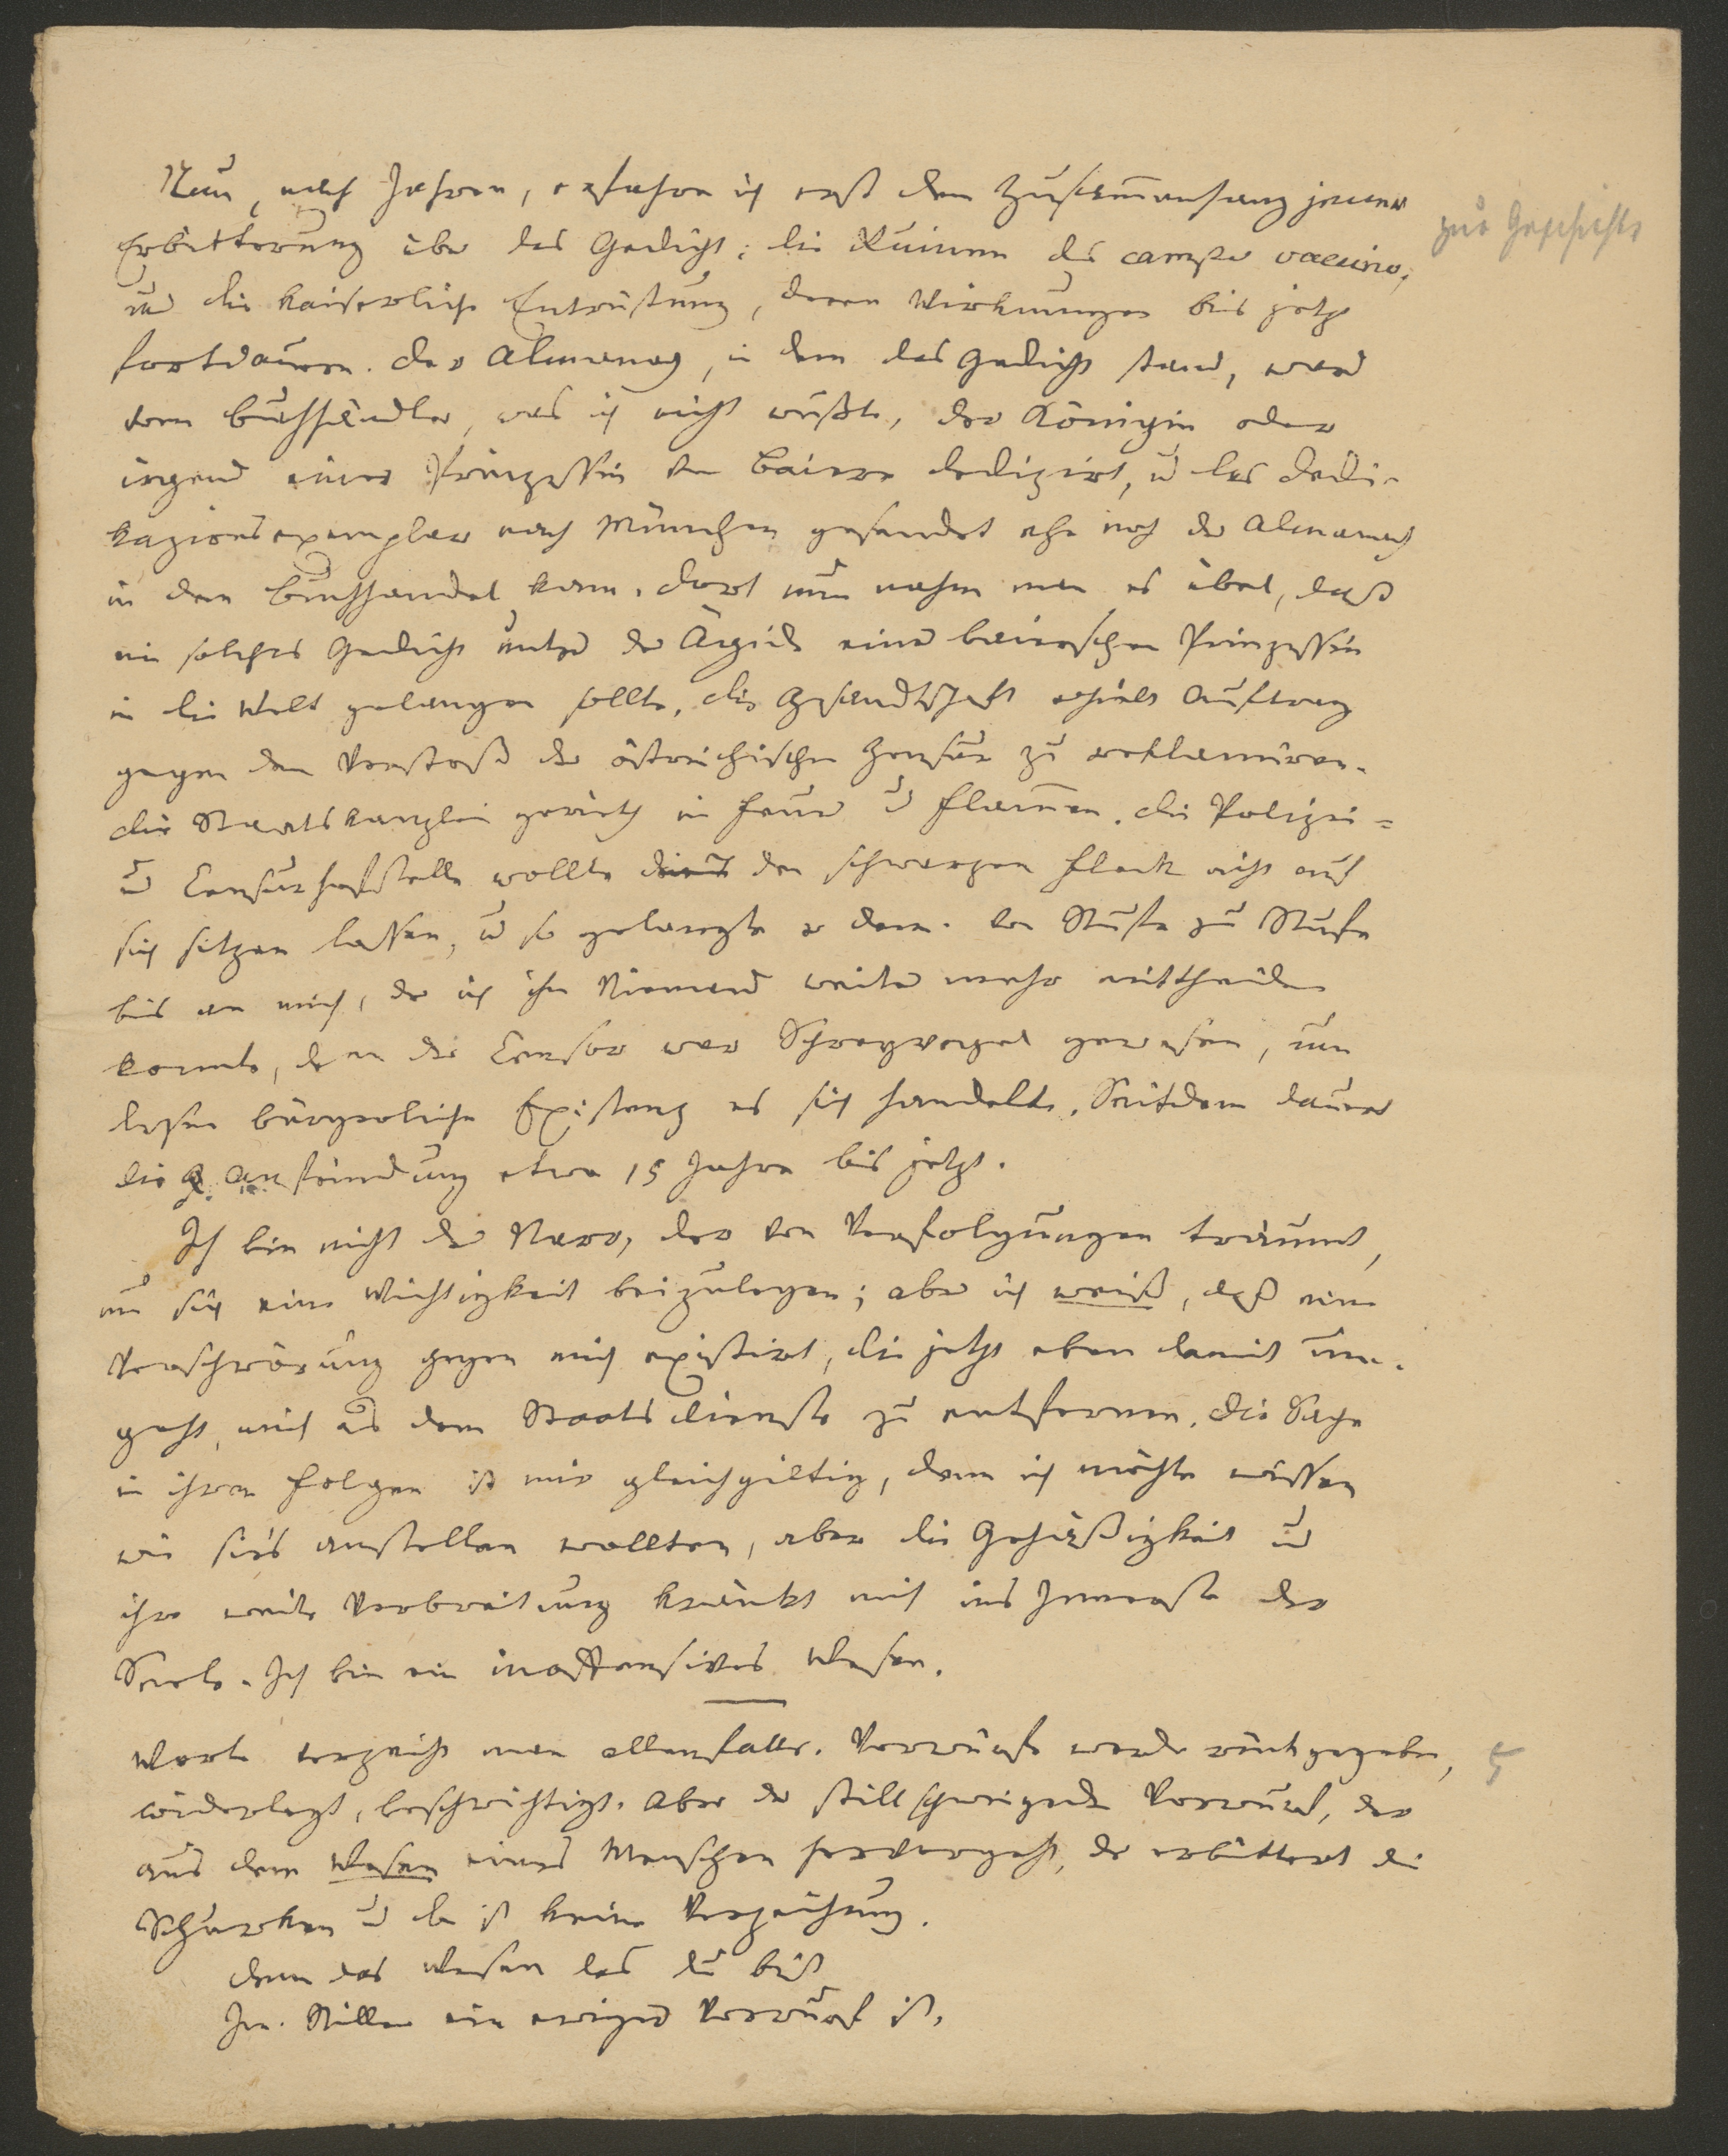 Nun, nach Jahren, erfahre ich erst den Zusam̅enhang jener
zur Geschichte
Erbitterung über das Gedicht: die Ruinen des campo vaccino,
und die kaiserliche Entrüstung, deren Wirkungen bis jetzt
fortdauern. Der Almanach, in dem das Gedicht stand, ward
vom Buchhändler, was ich nicht wußte, der Königin oder
irgend einer Prinzessin von Baiern dedizirt, u das Dedi-
kazionsexemplar nach München gesendet ehe noch der Almanach
in den Buchhandel kam. Dort nun nahm man es übel, daß
ein solches Gedicht unter der Ägide einer bairischen Prinzessin
in die Welt gelangen sollte. Die Gesandtschaft erhielt Auftrag
gegen den Verstoß der östreichischen Zensur zu reklamiren.
Die Staatskanzlei gerieth in Feuer u Flam̅en. Die Polizei-
u Censurhofstelle wollte den schwarzen Fleck nicht auf
sich sitzen lassen, u so gelangte er denn von Stufe zu Stufe
bis an mich, der ich ihn Niemand weiter mehr mittheilen
konnte, denn der Censor war Schreyvogel gewesen, um
dessen bürgerliche Existenz es sich handelte. Seitdem dauert
die Anfeindung etwa 15 Jahre bis jetzt.
Ich bin nicht der Narr, der von Verfolgungen träumt,
um sich eine Wichtigkeit beizulegen; aber ich weiß, daß eine
Verschwörung gegen mich existirt, die jetzt eben damit um-
geht, mich aus dem Staatsdienste zu entfernen. Die Sache
in ihren Folgen ist mir gleichgiltig, denn ich möchte wissen
wie sie's anstellen wollten, aber die Gehäßigkeit u
ihre weite Verbreitung kränkt mich ins Innerste der
Seele. Ich bin ein inoffensives Wesen.
Worte verzeiht man allenfalls. Vorwürfe werden rückgegeben,
5
widerlegt, beschwichtigt. Aber der stillschweigende Vorwurf, der
aus dem Wesen eines Menschen hervorgeht, der erbittert die
Schurken u da ist keine Verzeihung.
Denn das Wesen das du bist
Im Stillen ein ewiger Vorwurf ist.